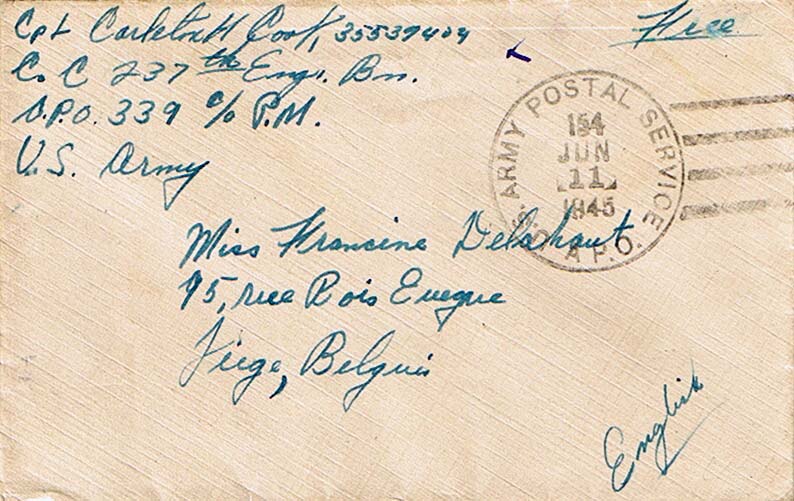 Cpl Carleton H Cook, 35539404
Free
Co C 237th Engr. Bn.
A.P.O. 339 c/o P.M.
U.S. Army
U.S. ARMY POSTAL SERVICE
JUN
11
1945
A.P.O.
Miss Francine Delahaut
95, rue Bois Eveque
Liege, Belguis
English